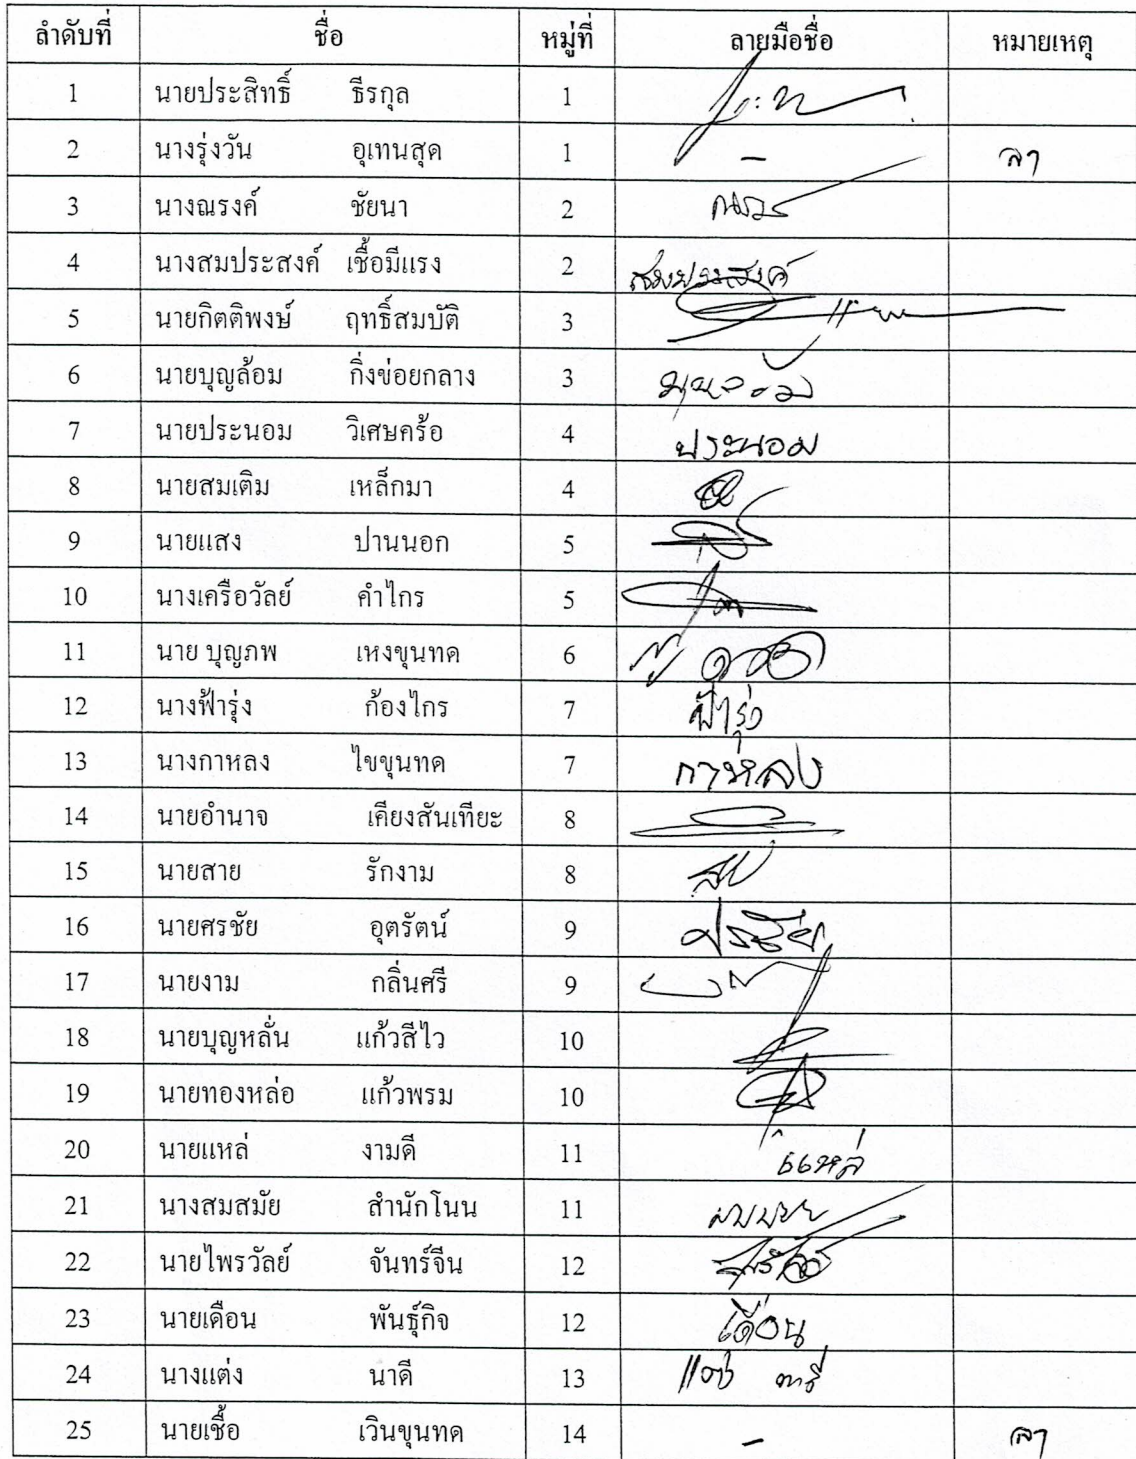 ลำดับที่ ชื่อ หมู่ที่ ลายมือชื่อ หมายเหตุ
1 นายประสิทธิ์ ธีรกุล 1
2 นางรุ่งวัน อุเทนสุด 1 - ลา
3 นางณรงค์ ชัยนา 2
4 นางสมประสงค์ เชื้อมีแรง 2 สมประสงค์
5 นายกิตติพงษ์ ฤทธิ์สมบัติ 3
6 นายบุญล้อม กิ่งข่อยกลาง 3
7 นายประนอม วิเศษคร้อ 4 ประนอม
8 นายสมเติม เหล็กมา 4
9 นายแสง ปานนอก 5
10 นางเครือวัลย์ คำไกร 5
11 นาย บุญภพ เหงขุนทด 6
12 นางฟ้ารุ่ง ก้องไกร 7 ฟ้ารุ่ง
13 นางกาหลง ไขขุนทด 7 กาหลง
14 นายอำนาจ เคียงสันเทียะ 8
15 นายสาย รักงาม 8
16 นายศรชัย อุตรัตน์ 9 ศรชัย
17 นายงาม กลิ่นศรี 9
18 นายบุญหลั่น แก้วสีไว 10
19 นายทองหล่อ แก้วพรม 10
20 นายแหล่ งามดี 11 แหล่
21 นางสมสมัย สำนักโนน 11
22 นายไพรวัลย์ จันทร์จีน 12
23 นายเดือน พันธุ์กิจ 12 เดือน
24 นางแต่ง นาดี 13
25 นายเชื้อ เวินขุนทด 14 - ลา